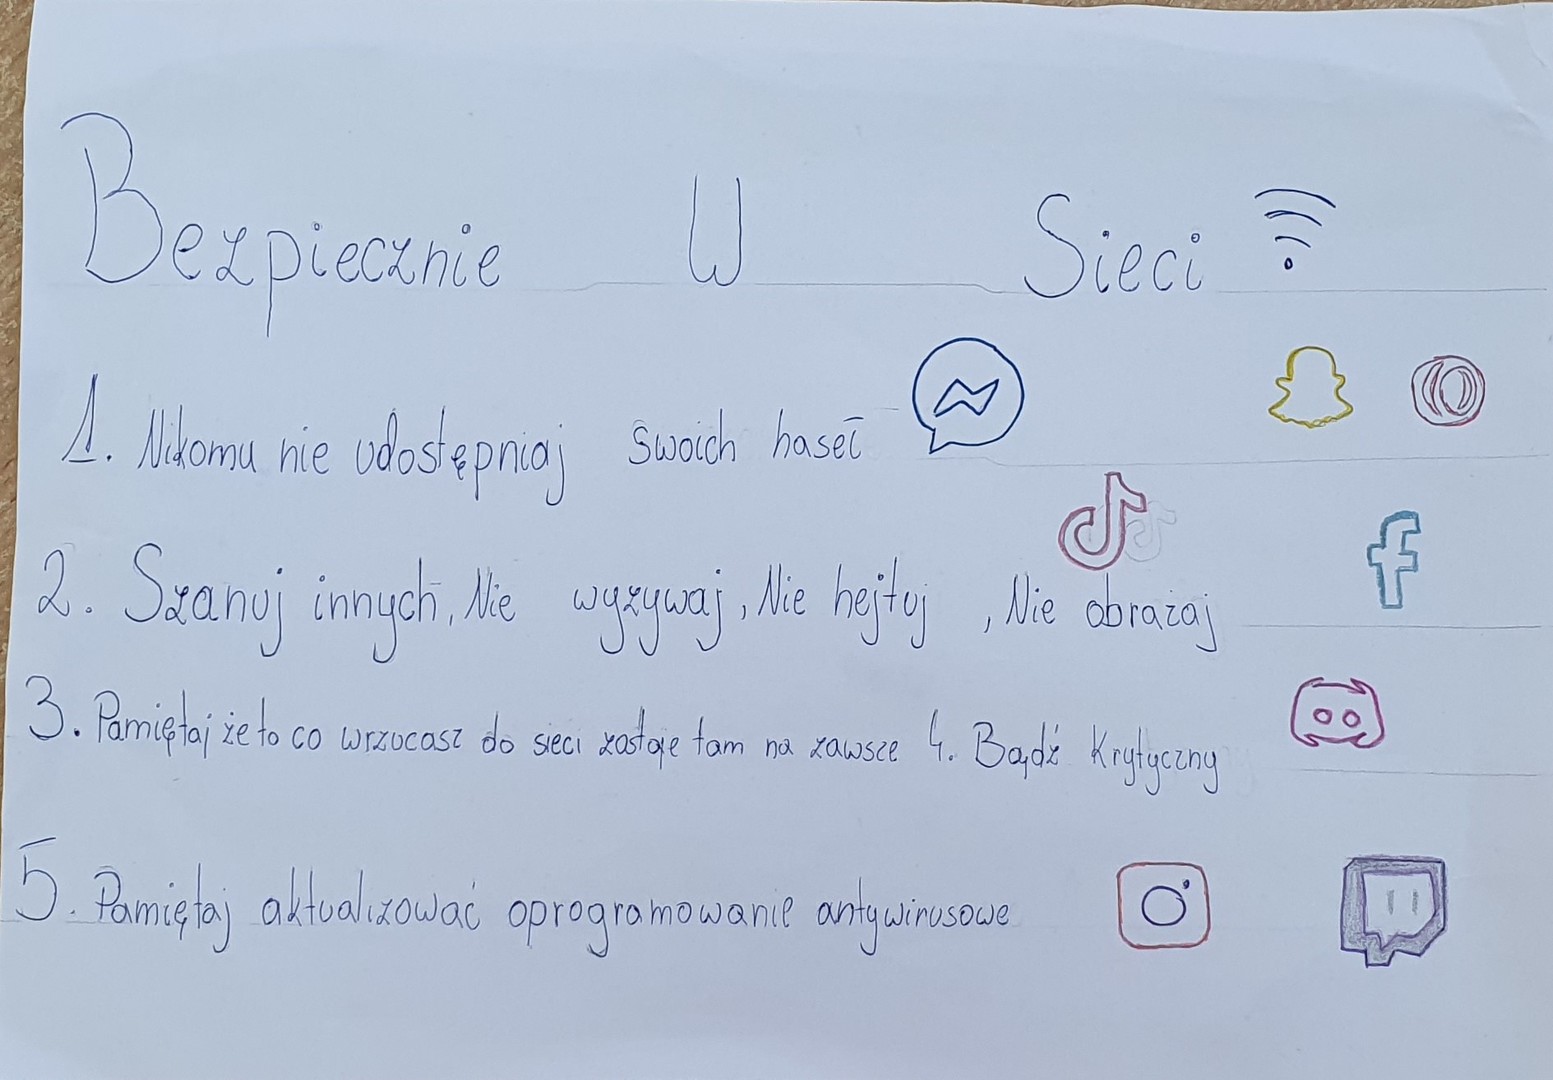 Bezpiecznie W Sieci
1. Nikomu nie udostępniaj swoich haseł
2. Szanuj innych, Nie wyzywaj, Nie hejtuj, Nie obrażaj
3. Pamiętaj że to co wrzucasz do sieci zostaje tam na zawsze 4. Bądź Krytyczny
5. Pamiętaj aktualizować oprogramowanie antywirusowe